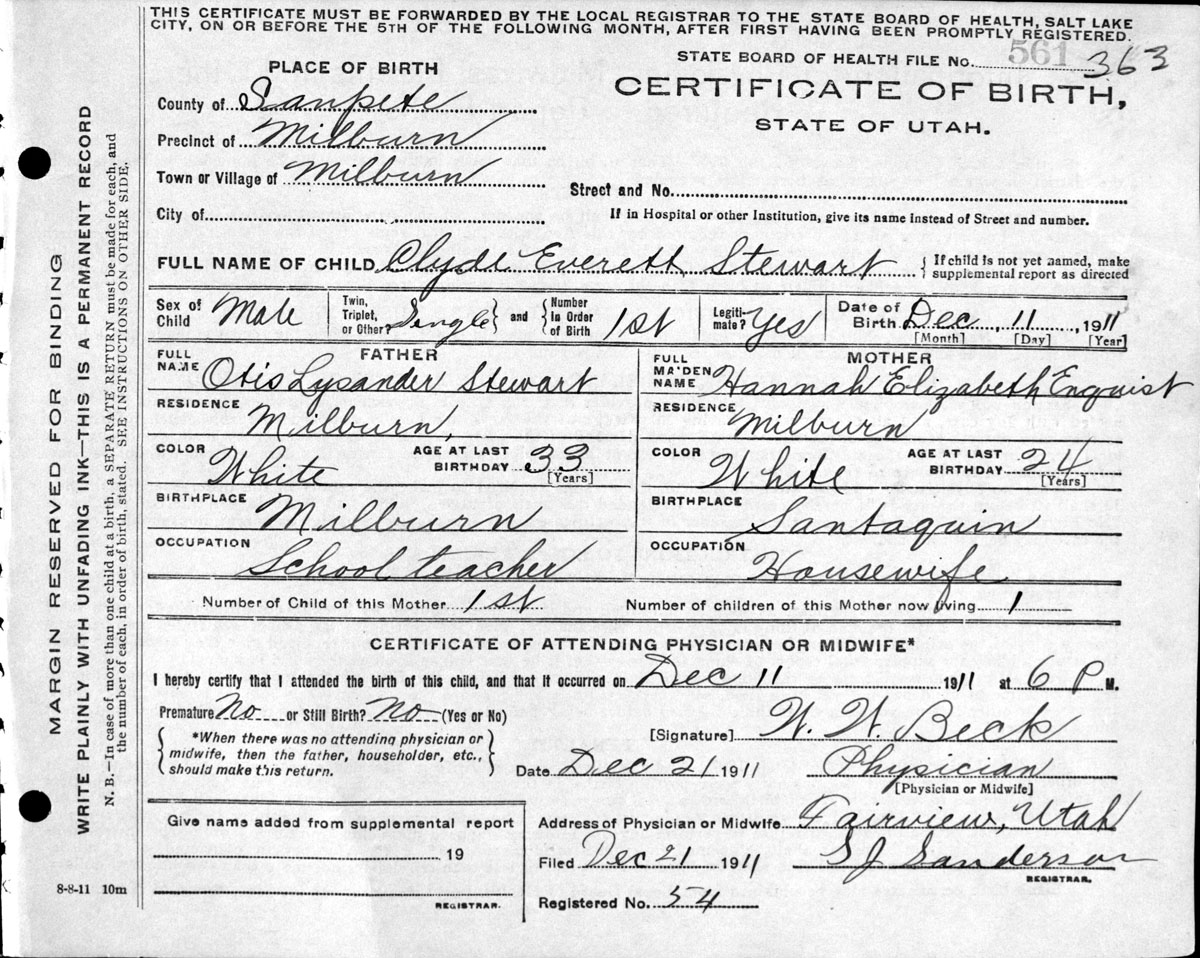 THIS CERTIFICATE MUST BE FORWARDED BY THE LOCAL REGISTRAR TO THE STATE BOARD OF HEALTH, SALT LAKE
CITY, ON OR BEFORE THE 5TH OF THE FOLLOWING MONTH, AFTER FIRST HAVING BEEN PROMPTLY REGISTERED.
STATE BOARD OF HEALTH FILE No. 561 363
CERTIFICATE OF BIRTH,
STATE OF UTAH.
PLACE OF BIRTH
County of Sanpete
Precinct of Milburn
Town or Village of Milburn
Street and No.
City of
If in Hospital or other Institution, give its name instead of Street and number.
FULL NAME OF CHILD Clyde Everett Stewart { If child is not yet named, make
supplemental report as directed
Sex of Child Male Twin, Triplet, or Other? Single } and { Number In Order of Birth 1st Legiti-mate? Yes Date of Birth Dec, 11, 1911
[Month] [Day] [Year]
FATHER MOTHER
FULL NAME Otis Lysander Stewart FULL MAIDEN NAME Hannah Elizabeth Enquist
RESIDENCE Milburn, RESIDENCE Milburn
COLOR White AGE AT LAST BIRTHDAY 33 [Years] COLOR White AGE AT LAST BIRTHDAY 24 [Years]
BIRTHPLACE Milburn BIRTHPLACE Santaquin
OCCUPATION School teacher OCCUPATION Housewife
Number of Child of this Mother 1st Number of children of this Mother now living 1
CERTIFICATE OF ATTENDING PHYSICIAN OR MIDWIFE*
I hereby certify that I attended the birth of this child, and that it occurred on Dec 11 1911 at 6 P M.
Premature No or Still Birth? No (Yes or No)
[Signature] W. W. Beck
{ *When there was no attending physician or
midwife, then the father, householder, etc.,
should make this return. }
Date Dec 21 1911 Physician
[Physician or Midwife]
Give name added from supplemental report
19
REGISTRAR.
Address of Physician or Midwife Fairview, Utah
Filed Dec 21 1911 S J Sanderson
REGISTRAR.
Registered No. 54
8-8-11 10m
MARGIN RESERVED FOR BINDING
WRITE PLAINLY WITH UNFADING INK—THIS IS A PERMANENT RECORD
N. B.—In case of more than one child at a birth, a SEPARATE RETURN must be made for each, and
the number of each, in order of birth, stated. SEE INSTRUCTIONS ON OTHER SIDE.